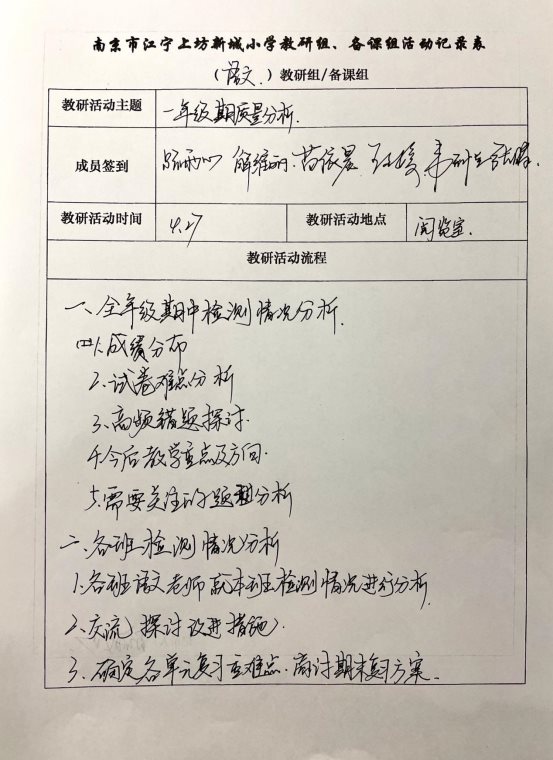 南京市江宁上坊新城小学教研组、备课组活动记录表
（语文）教研组/备课组
教研活动主题 一年级期质量分析.
成员签到
教研活动时间 4.27 教研活动地点 阅览室.
教研活动流程
一、全年级期中检测情况分析.
1.成绩分布
2.试卷难点分析
3.高频错题探讨.
4.今后教学重点及方向.
5.需要关注的题型分析
二、各班检测情况分析
1.各班语文老师就本班检测情况进行分析.
2.交流、探讨改进措施.
3.确定各单元复习重难点.商讨期末复习方案.